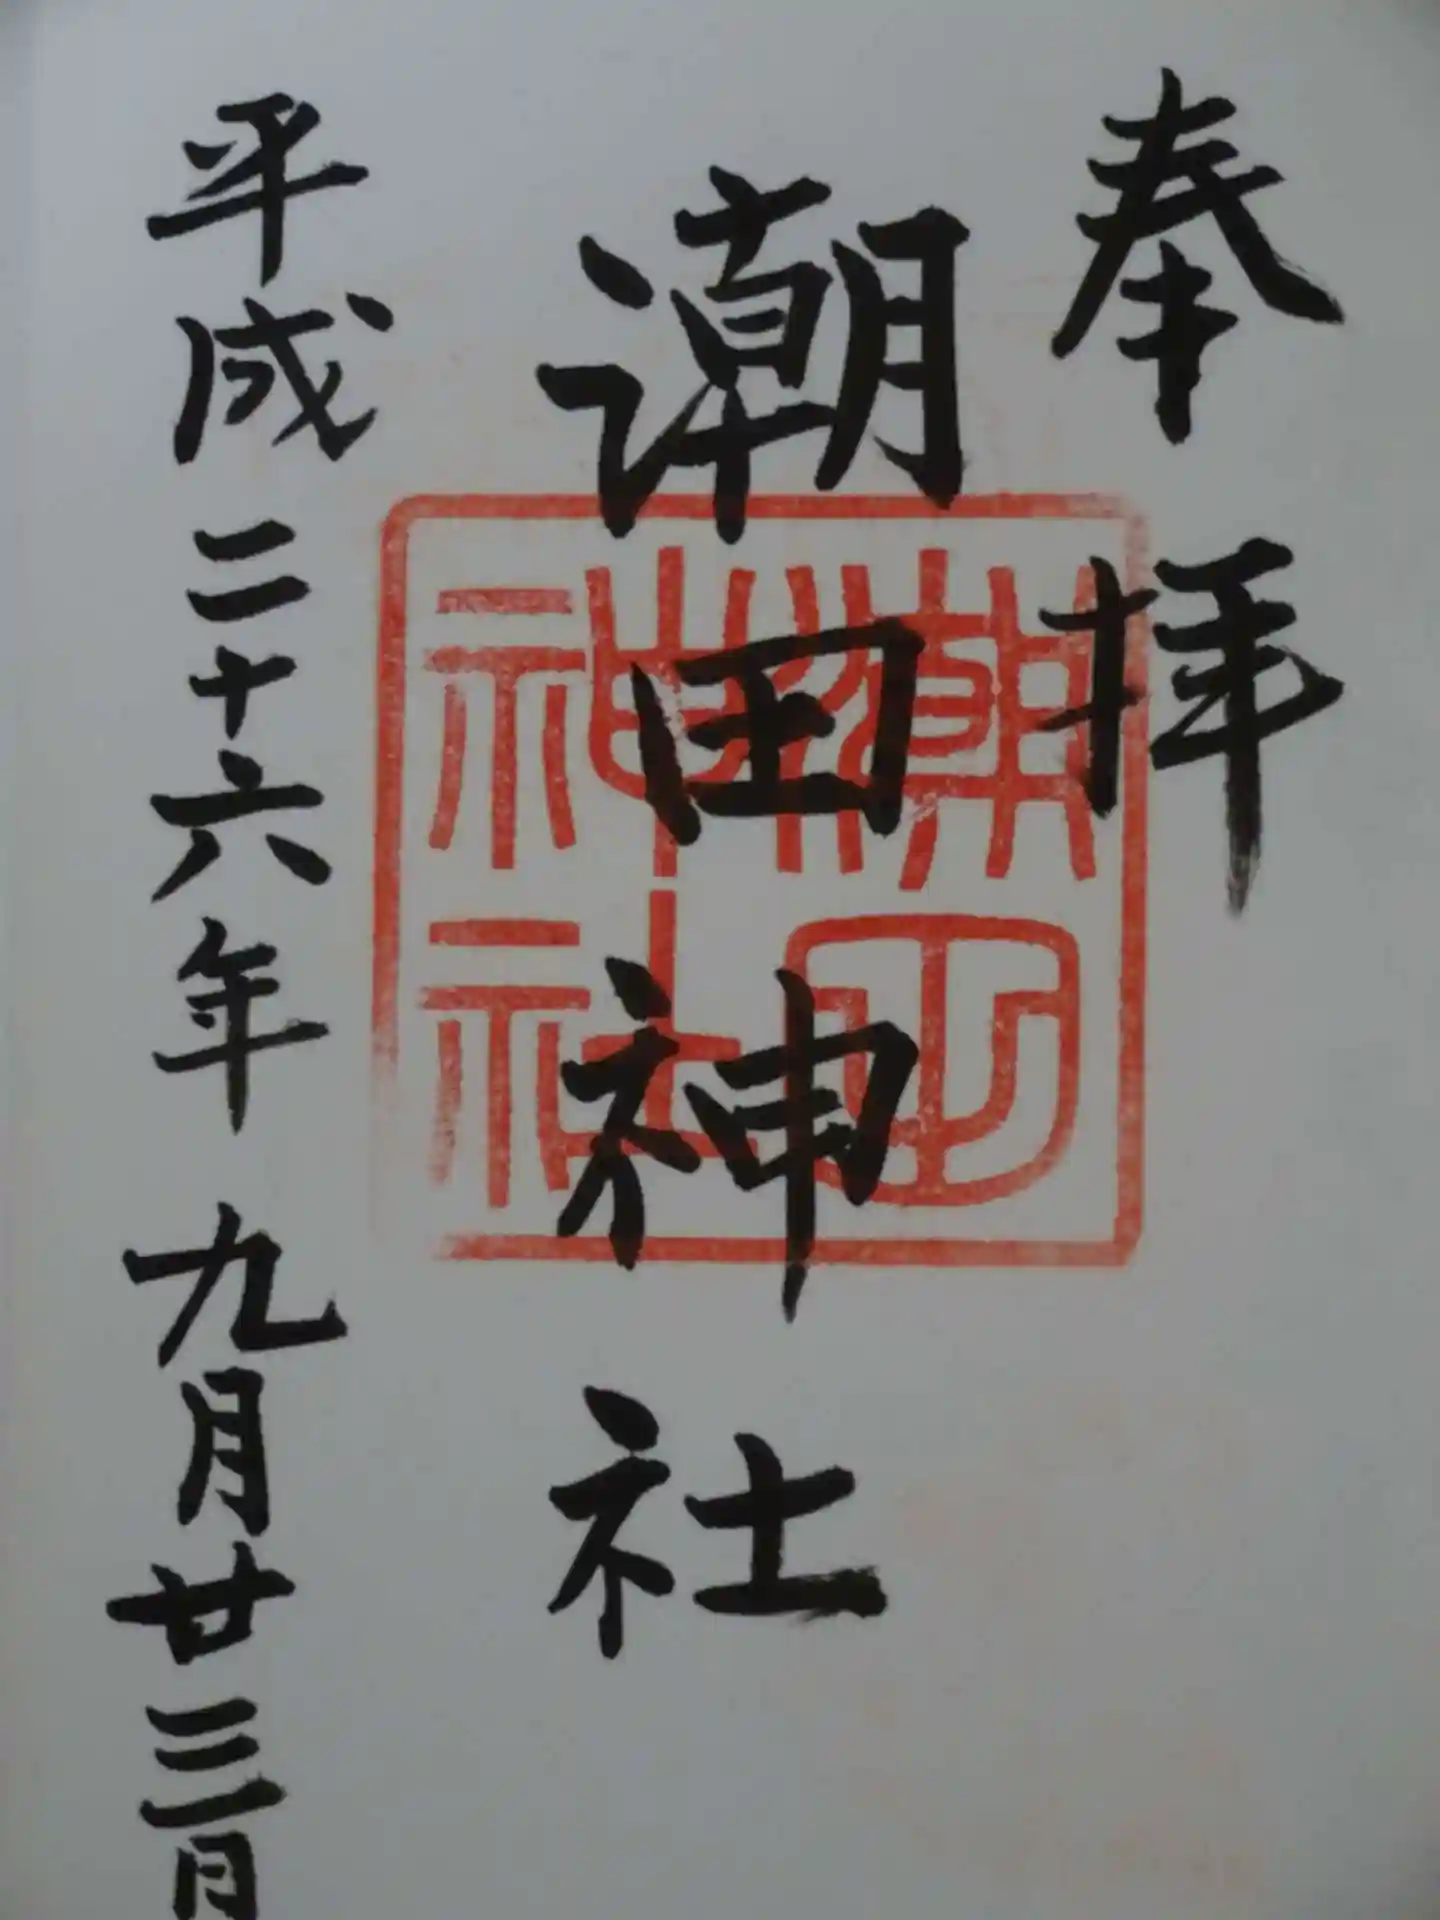 奉拝
潮田神社
潮田
神社
平成二十六年九月廿三日